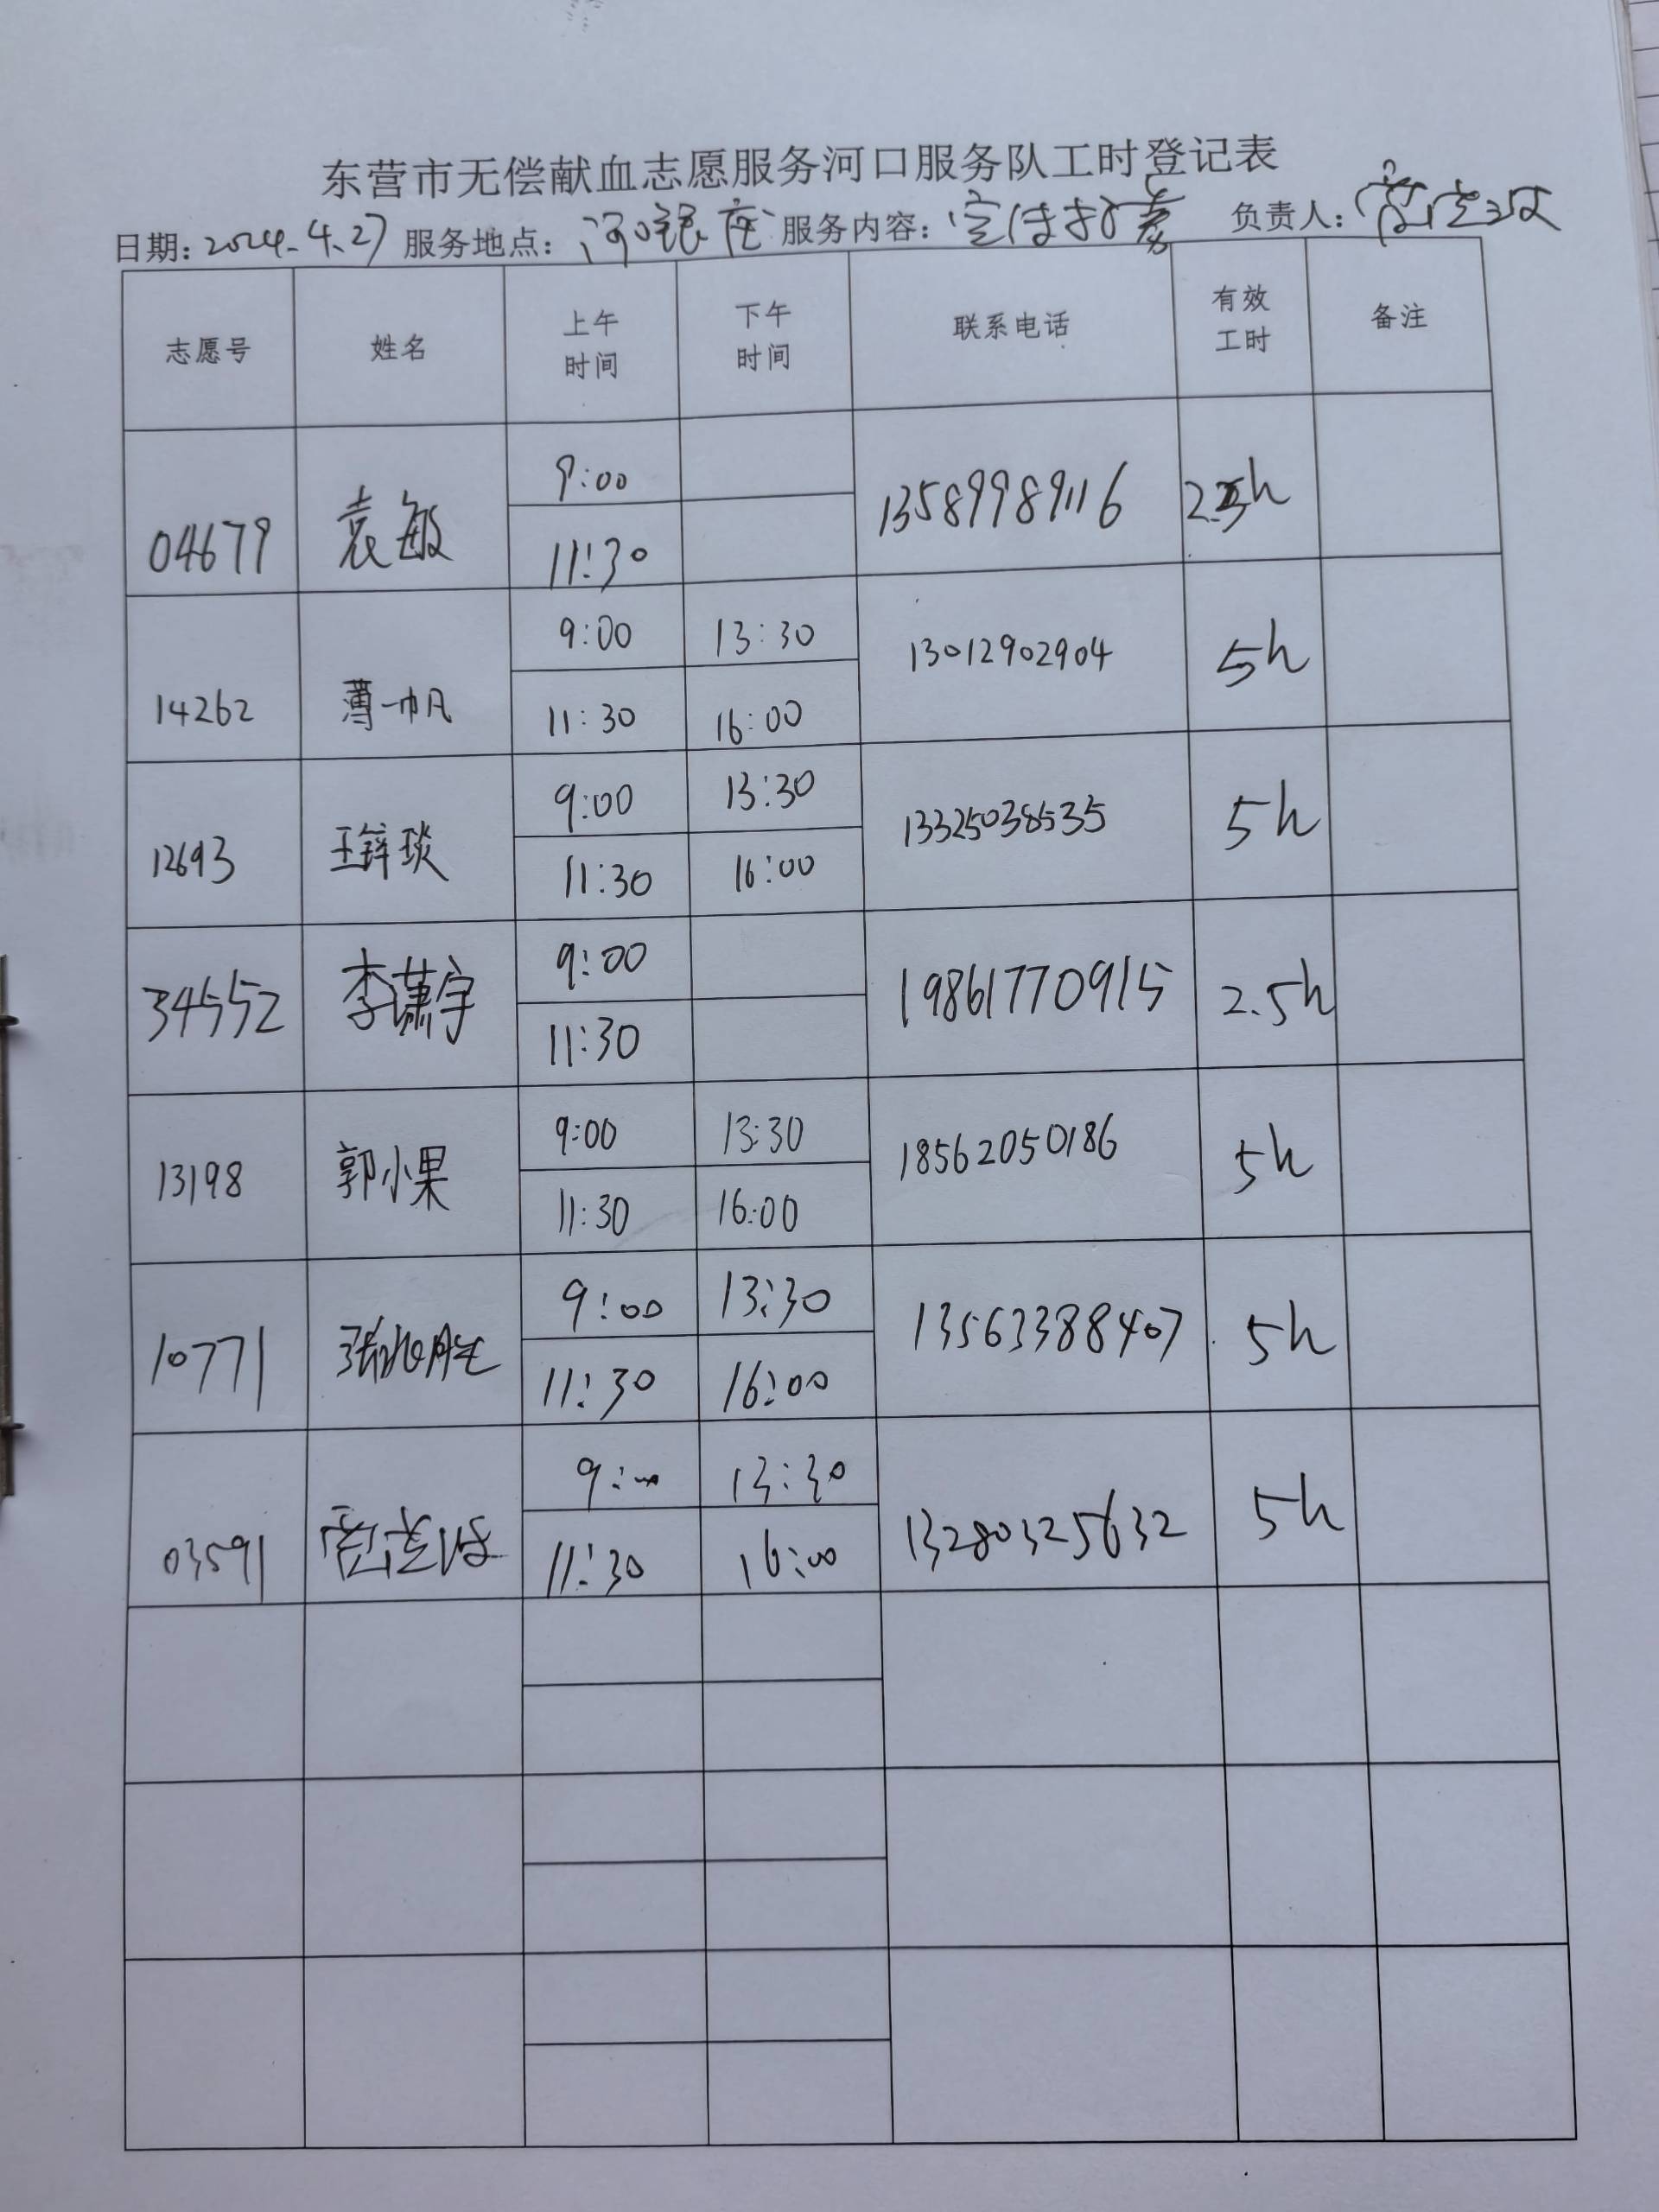 东营市无偿献血志愿服务河口服务队工时登记表
日期：2024.4.27 服务地点：河口银座 服务内容：宣传招募 负责人：
志愿号 姓名 上午时间 下午时间 联系电话 有效工时 备注
04679 袁敏 9:00 11:30 13589989116 2.5h
14262 薄一帆 9:00 11:30 13:30 16:00 13012902904 5h
12693 王锌琰 9:00 11:30 13:30 16:00 13325038535 5h
34552 李潇宇 9:00 11:30 19861770915 2.5h
13198 郭小果 9:00 11:30 13:30 16:00 18562050186 5h
10771 9:00 11:30 13:30 16:00 13563388407 5h
03591 9:00 11:30 13:30 16:00 13280325632 5h